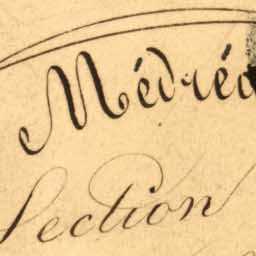 Médréa
Section